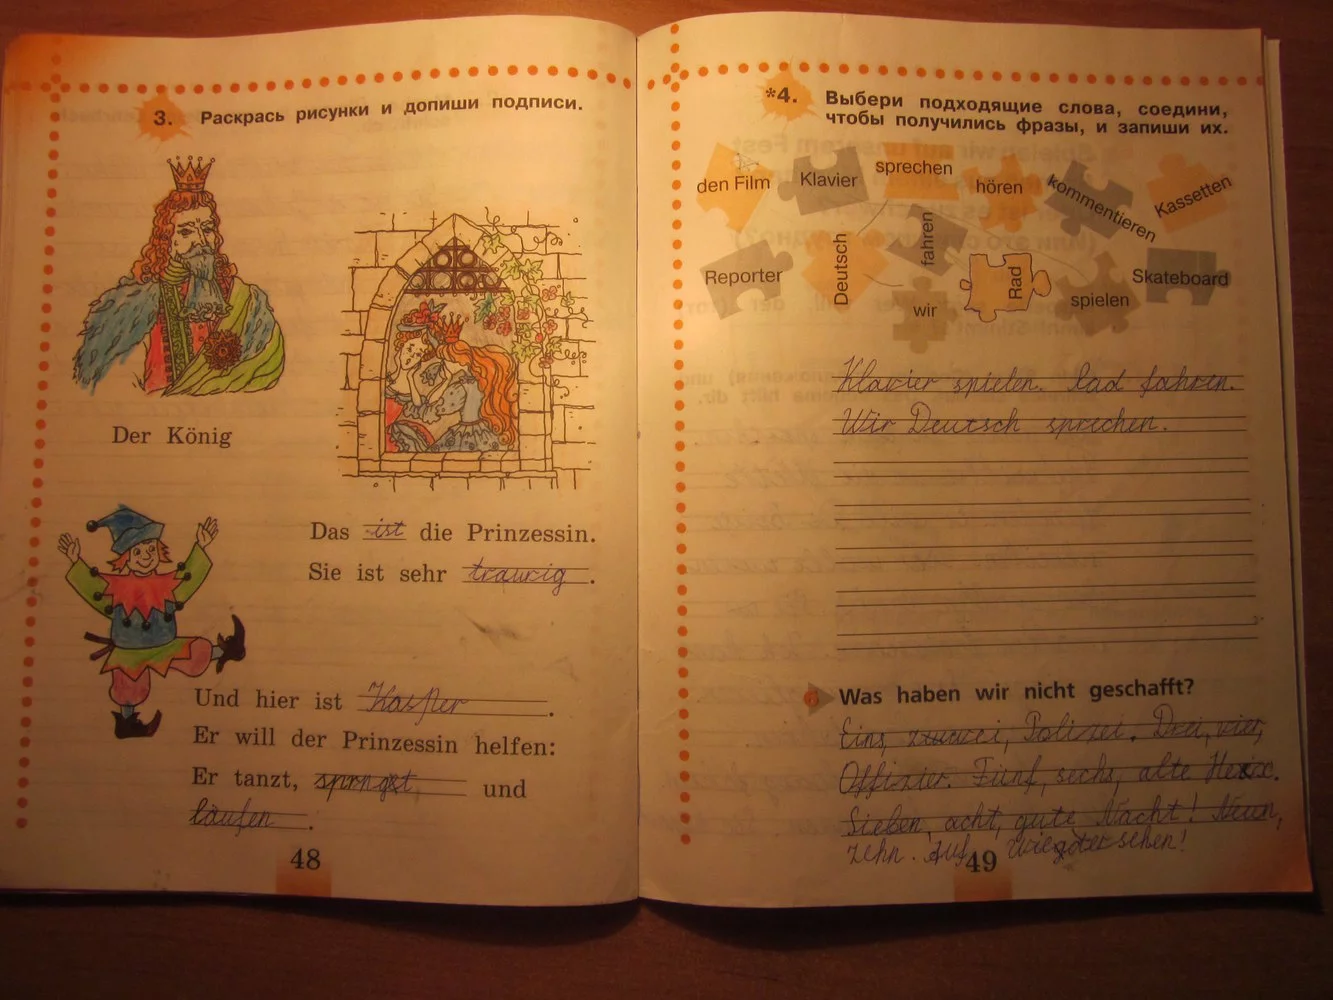 3. Раскрась рисунки и допиши подписи.
Der König
Das ist die Prinzessin.
Sie ist sehr traurig.
Und hier ist Kasper.
Er will der Prinzessin helfen:
Er tanzt, springt und
laufen.
48
*4. Выбери подходящие слова, соедини,
чтобы получились фразы, и запиши их.
den Film
Klavier
sprechen
hören
kommentieren
Kassetten
Reporter
Deutsch
fahren
wir
Rad
spielen
Skateboard
Klavier spielen. Rad fahren.
Wir Deutsch sprechen.
6 Was haben wir nicht geschafft?
Eins, Polizei. Drei, vier,
Offizier. Fünf, sechs, alte Hexe.
Sieben, acht, gute Nacht! Neun,
zehn. Auf Wiedersehen!
49